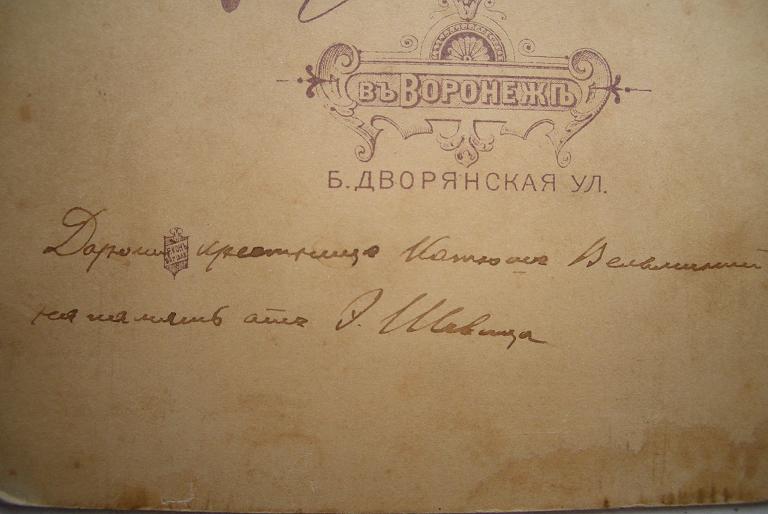 въ Воронежѣ
Б. ДВОРЯНСКАЯ УЛ.
Дорогой крестницѣ Катюшѣ Вельяминовой
на память отъ Э. Шевица